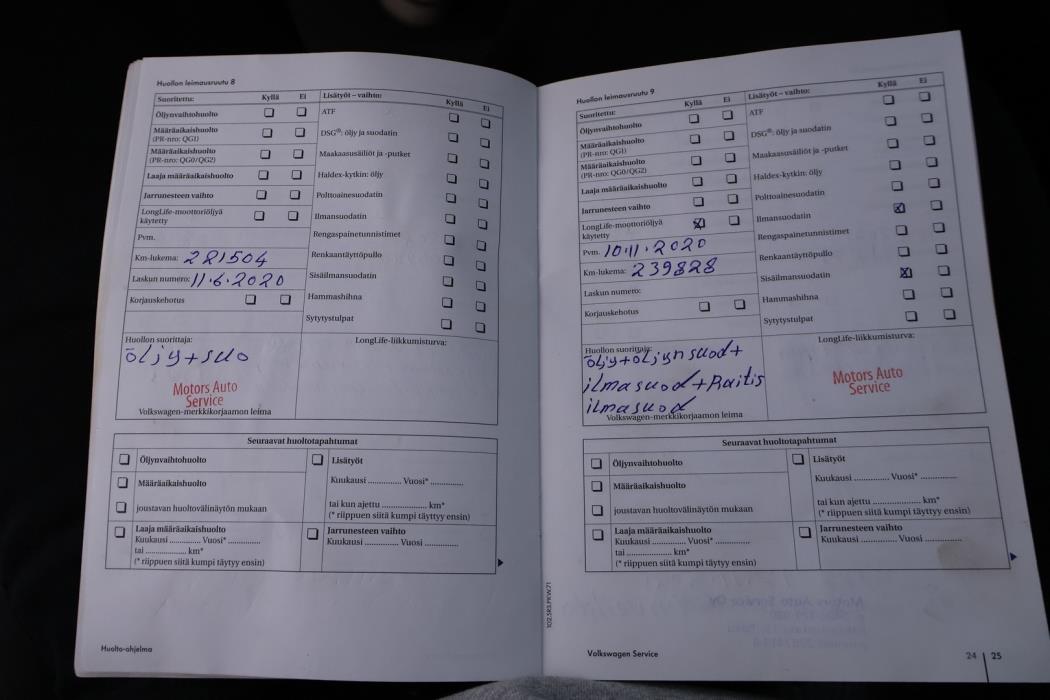 Huollon leimausruutu 8
Suoritettu: Kyllä Ei Lisätyöt – vaihto: Kyllä Ei
Öljynvaihtohuolto
Määräaikaishuolto
(PR-nro: QG1)
Määräaikaishuolto
(PR-nro: QG0/QG2)
Laaja määräaikaishuolto
Jarrunesteen vaihto
LongLife-moottoriöljyä
käytetty
Pvm.
Km-lukema: 221504
Laskun numero: 11.6.2020
Korjauskehotus
ATF
DSG®: öljy ja suodatin
Maakaasusäiliöt ja -putket
Haldex-kytkin: öljy
Polttoainesuodatin
Ilmansuodatin
Rengaspainetunnistimet
Renkaantäyttöpullo
Sisäilmansuodatin
Hammashihna
Sytytystulpat
Huollon suorittaja:
öljy+suo
Motors Auto
Service
Volkswagen-merkkikorjaamon leima
LongLife-liikkumisturva:
Seuraavat huoltotapahtumat
Öljynvaihtohuolto
Määräaikaishuolto
joustavan huoltovälinäytön mukaan
Laaja määräaikaishuolto
Kuukausi ............. Vuosi* .............
tai ................ km*
(* riippuen siitä kumpi täytyy ensin)
Lisätyöt
Kuukausi ............. Vuosi* .............
tai kun ajettu ...................... km*
(* riippuen siitä kumpi täytyy ensin)
Jarrunesteen vaihto
Kuukausi ............. Vuosi .............
Huolto-ohjelma
102.5R3.PKW.71
Huollon leimausruutu 9
Suoritettu: Kyllä Ei Lisätyöt – vaihto: Kyllä Ei
Öljynvaihtohuolto
Määräaikaishuolto
(PR-nro: QG1)
Määräaikaishuolto
(PR-nro: QG0/QG2)
Laaja määräaikaishuolto
Jarrunesteen vaihto
LongLife-moottoriöljyä
käytetty
Pvm. 10.11.2020
Km-lukema: 239828
Laskun numero:
Korjauskehotus
ATF
DSG®: öljy ja suodatin
Maakaasusäiliöt ja -putket
Haldex-kytkin: öljy
Polttoainesuodatin
Ilmansuodatin
Rengaspainetunnistimet
Renkaantäyttöpullo
Sisäilmansuodatin
Hammashihna
Sytytystulpat
Huollon suorittaja:
öljy+öljynsuod+
ilmasuod+Raitis
ilmasuod
Volkswagen-merkkikorjaamon leima
LongLife-liikkumisturva:
Motors Auto
Service
Seuraavat huoltotapahtumat
Öljynvaihtohuolto
Määräaikaishuolto
joustavan huoltovälinäytön mukaan
Laaja määräaikaishuolto
Kuukausi ............. Vuosi* .............
tai ................ km*
(* riippuen siitä kumpi täytyy ensin)
Lisätyöt
Kuukausi ............. Vuosi* .............
tai kun ajettu ...................... km*
(* riippuen siitä kumpi täytyy ensin)
Jarrunesteen vaihto
Kuukausi ............. Vuosi .............
Volkswagen Service
24 25